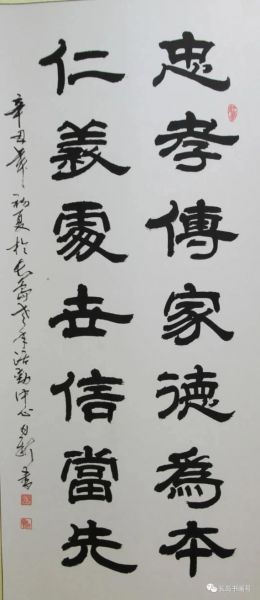 忠孝傳家德為本
仁義處世信當先
辛丑年初夏於長壽老年活動中心自新書
长岛书画号